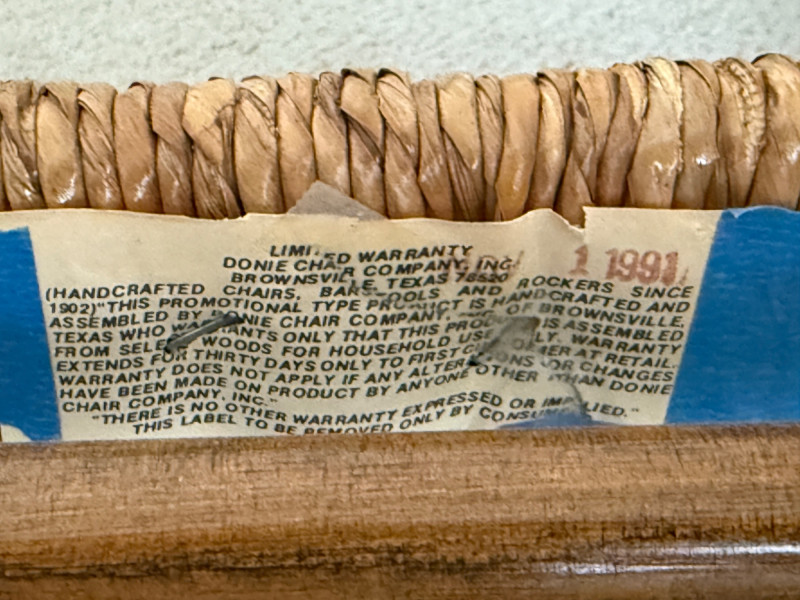 LIMITED WARRANTY
DONIE CHAIR COMPANY, INC.
1 1991
BROWNSVILLE, TEXAS 78520
(HANDCRAFTED CHAIRS, BAR STOOLS AND ROCKERS SINCE
1902) "THIS PROMOTIONAL TYPE PRODUCT IS HANDCRAFTED AND
ASSEMBLED BY DONIE CHAIR COMPANY OF BROWNSVILLE,
TEXAS WHO WARRANTS ONLY THAT THIS PRODUCT IS ASSEMBLED
FROM SELECT WOODS FOR HOUSEHOLD USE ONLY. WARRANTY
EXTENDS FOR THIRTY DAYS ONLY TO FIRST CUSTOMER AT RETAIL.
WARRANTY DOES NOT APPLY IF ANY ALTERATIONS OR CHANGES
HAVE BEEN MADE ON PRODUCT BY ANYONE OTHER THAN DONIE
CHAIR COMPANY, INC."
"THERE IS NO OTHER WARRANTY EXPRESSED OR IMPLIED."
THIS LABEL TO BE REMOVED ONLY BY CONSUMER